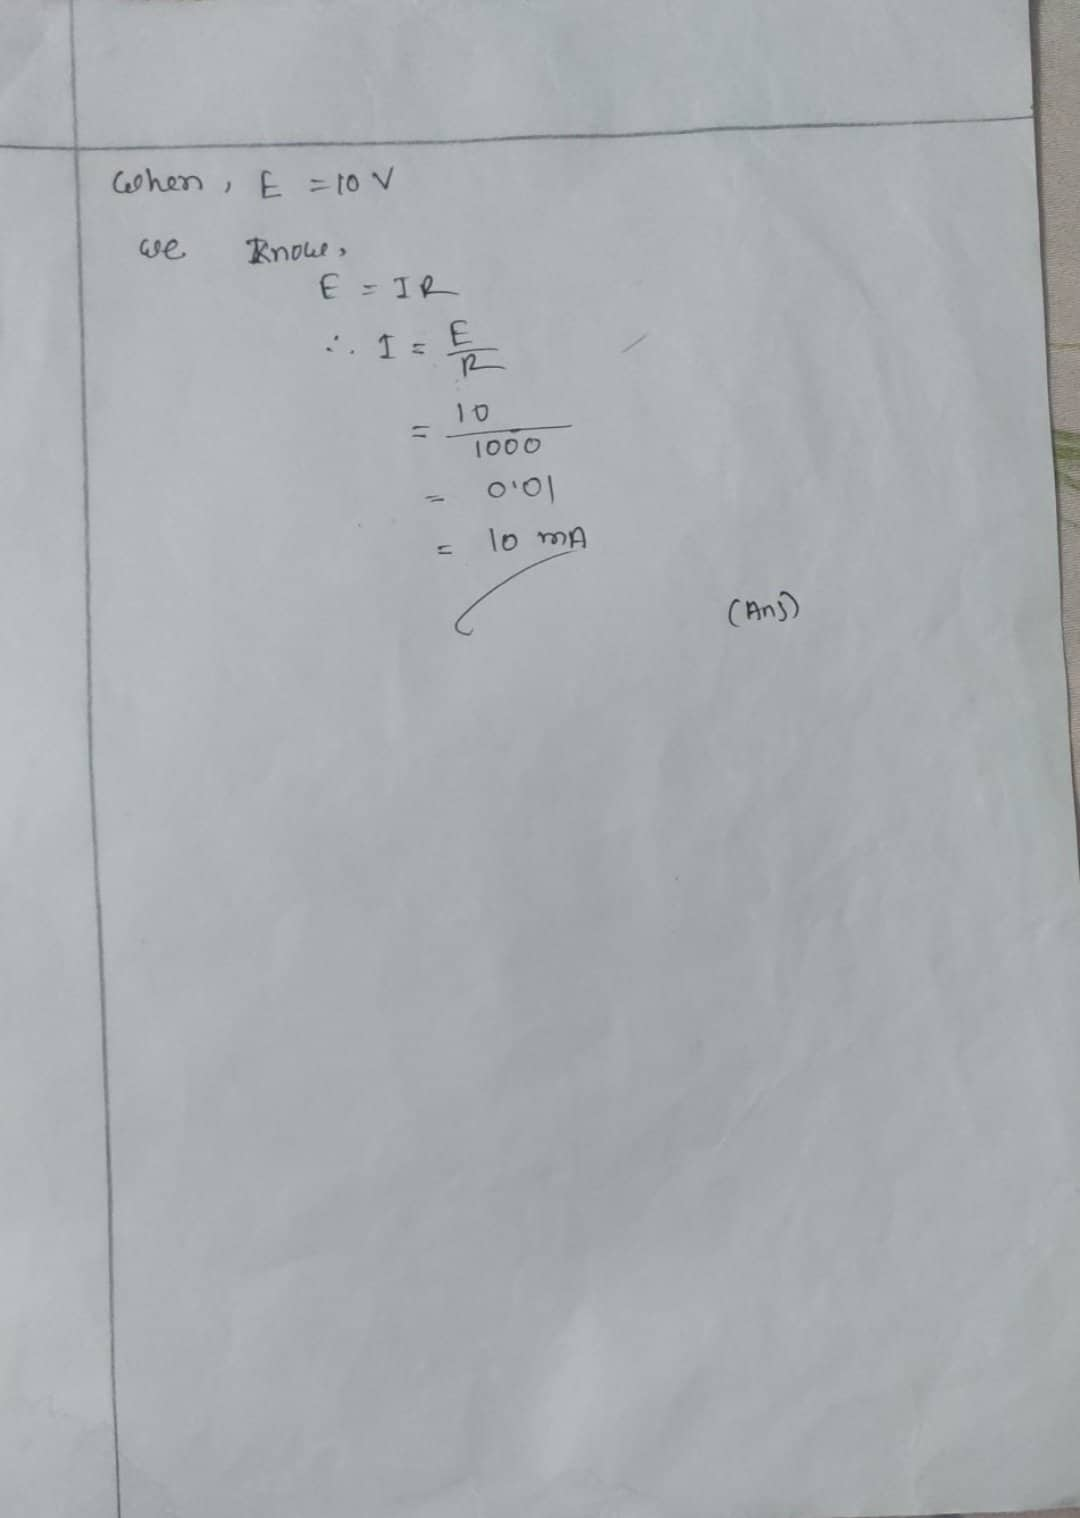 When, E = 10 V
we Know,
E = IR
∴ I = E/R
= 10/1000
= 0.01
= 10 mA
(Ans)